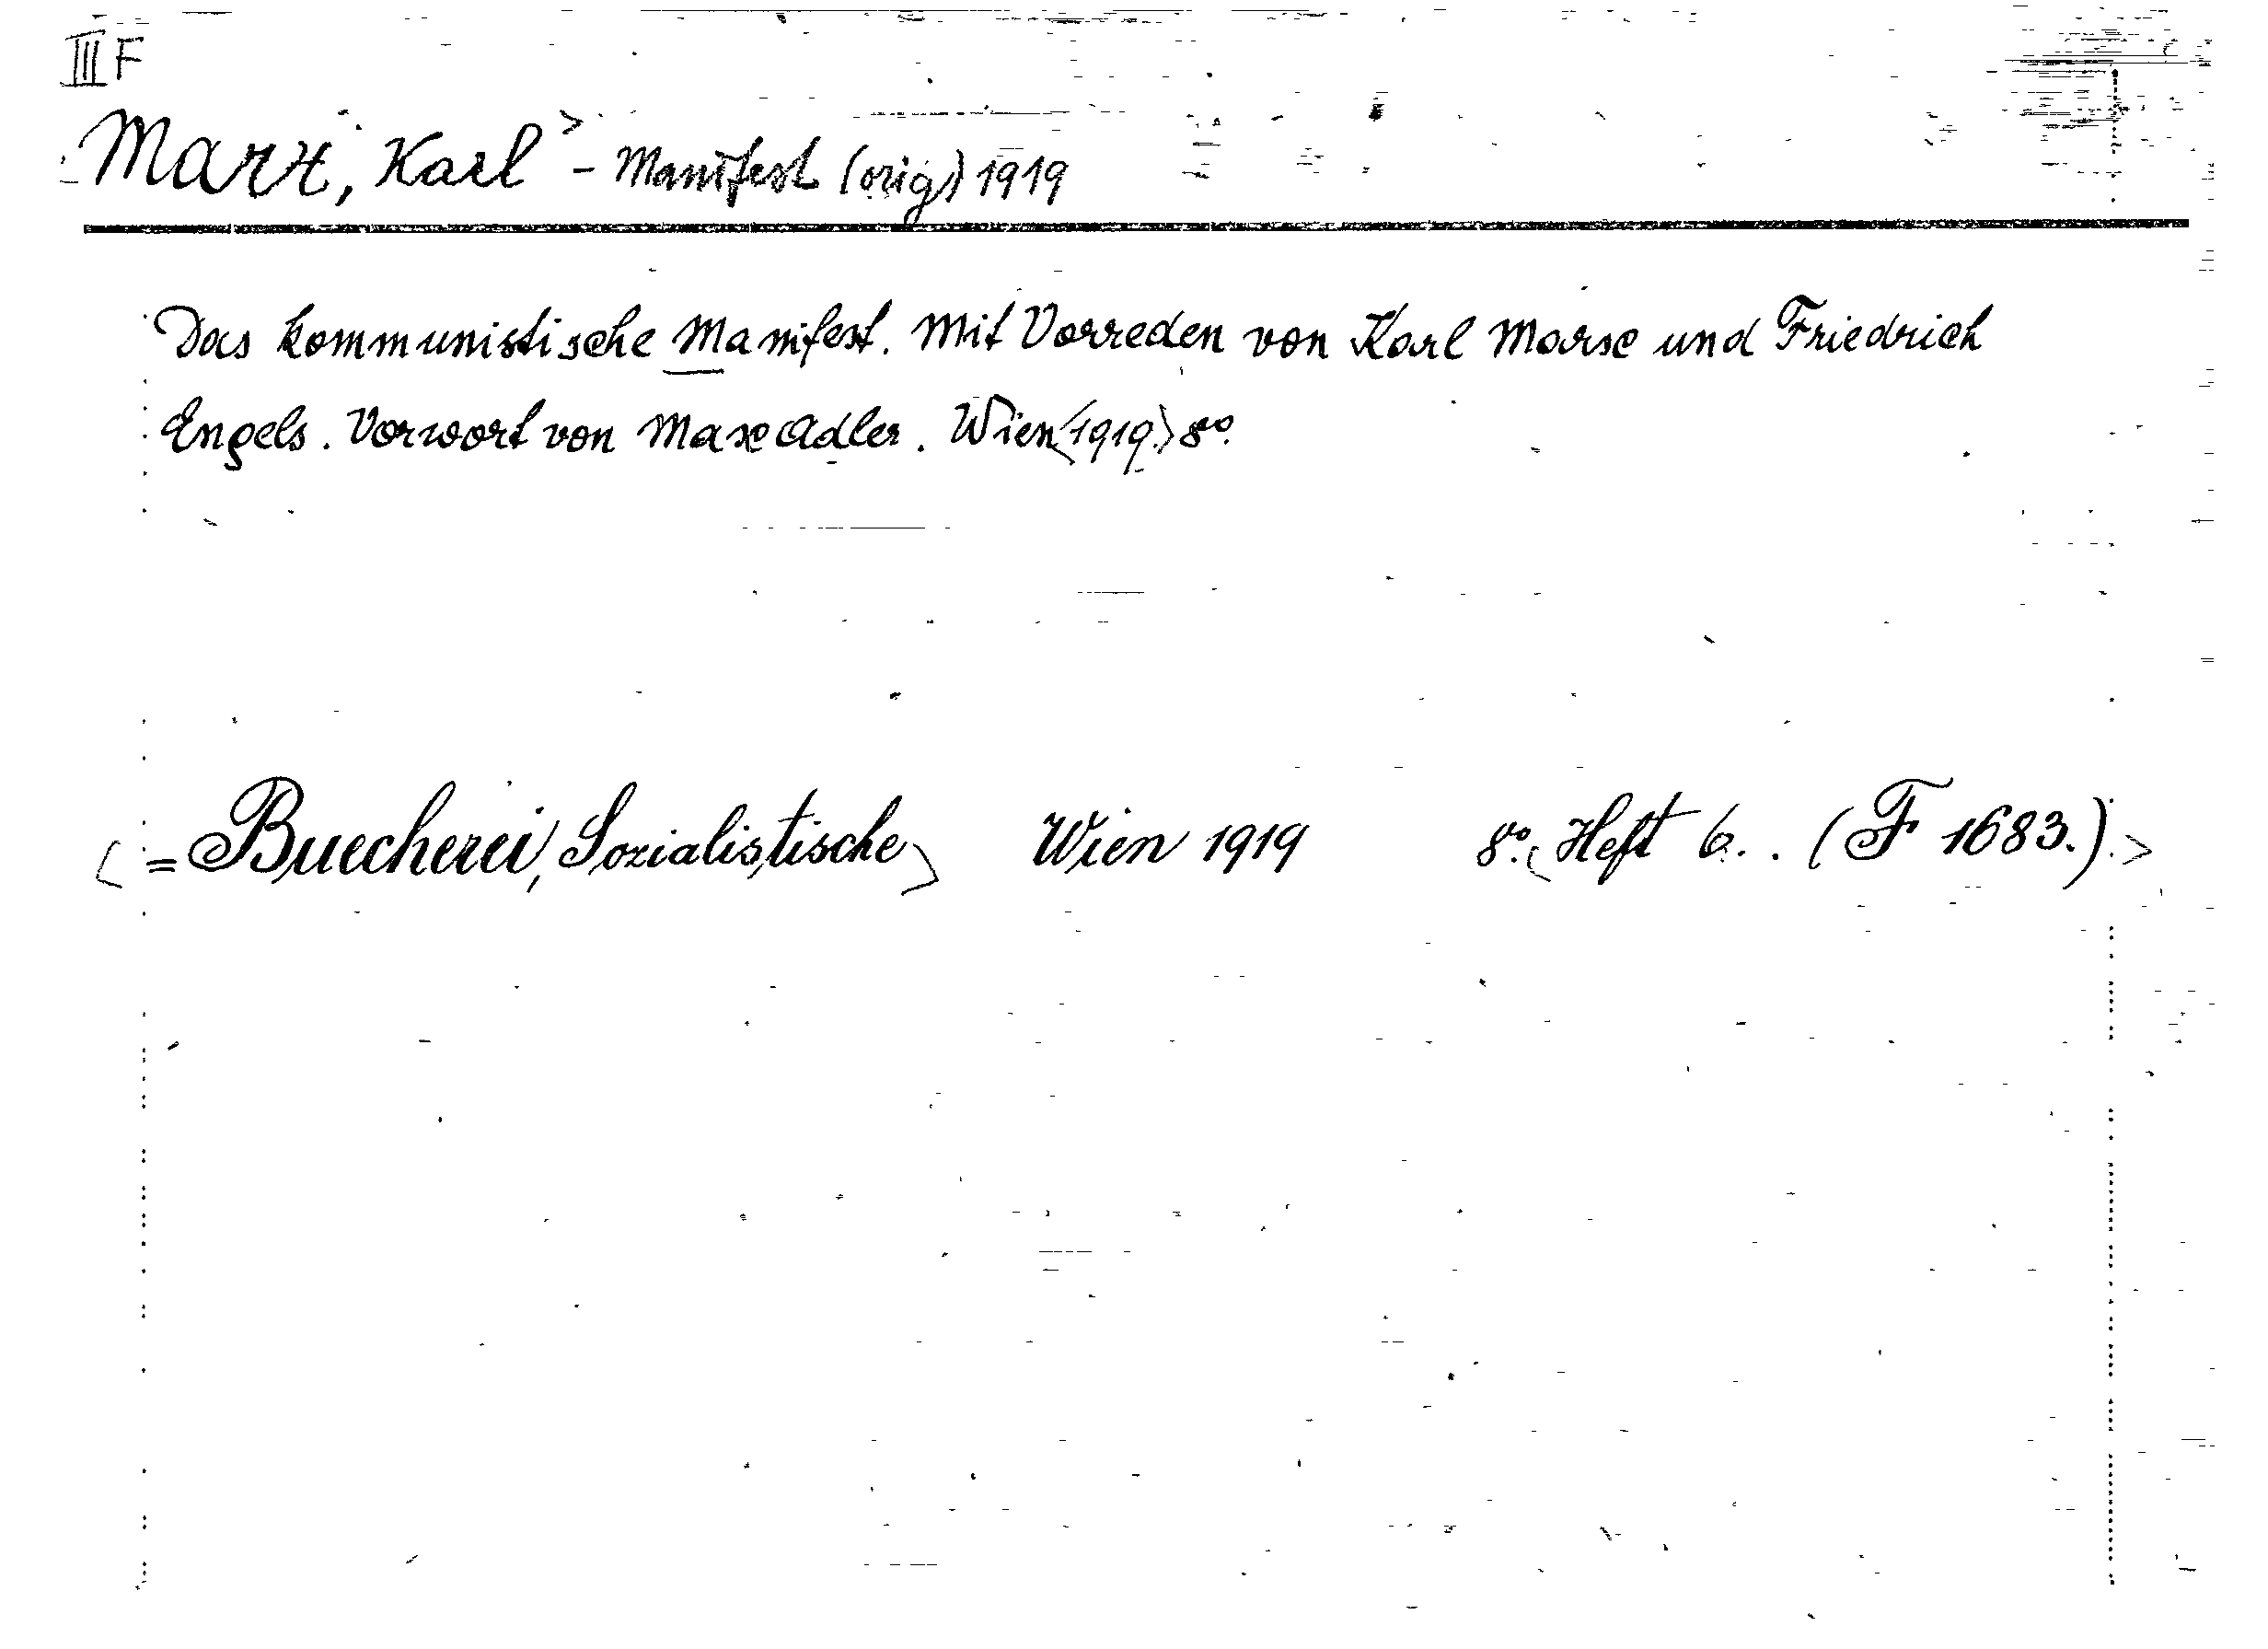 III F
Marx, Karl > - Manifest (orig.) 1919
Das kommunistische Manifest. Mit Vorreden von Karl Marx und Friedrich
Engels. Vorwort von Max Adler. Wien <1919.> 8o.
< = Buecherei, Sozialistische> Wien 1919 8o. < Heft 6. . (F 1683.) >